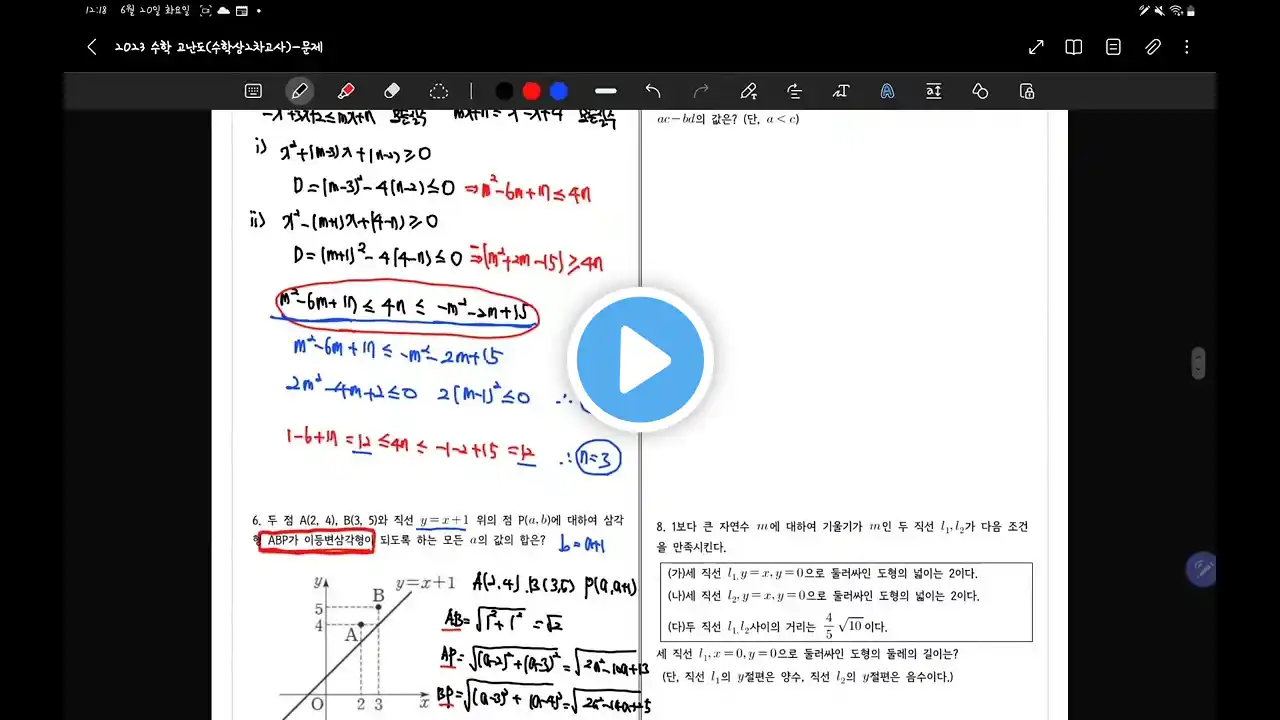 12:18 6월 20일 화요일
2023 수학 고난도(수학상2차고사)-문제
-x²+3x+2≤mx+n 모든실수 mx+n≤x²-x+4 모든실수
i) x²+(m-3)x+(n-2)≥0
D=(m-3)²-4(n-2)≤0 ⇒m²-6m+17≤4n
ii) x²-(m+1)x+(4-n)≥0
D=(m+1)²-4(4-n)≤0 ⇒-(m²+2m-15)≥4n
m²-6m+17≤4n≤-m²-2m+15
m²-6m+17≤-m²-2m+15
2m²-4m+2≤0 2(m-1)²≤0 ∴
1-6+17=12≤4n≤-1-2+15=12 ∴ n=3
6. 두 점 A(2, 4), B(3, 5)와 직선 y=x+1 위의 점 P(a,b)에 대하여 삼각
형 ABP가 이등변삼각형이 되도록 하는 모든 a의 값의 합은? b=a+1
y
y=x+1
B
5
4
A
O 2 3 x
A(2,4). B(3,5) P(a,a+1)
AB=√1²+1²=√2
AP=√(a-2)²+(a-3)²=√2a²-10a+13
BP=√(a-3)²+(a-4)²=√2a²-14a+25
ac-bd의 값은? (단, a<c)
8. 1보다 큰 자연수 m에 대하여 기울기가 m인 두 직선 l₁,l₂가 다음 조건
을 만족시킨다.
(가)세 직선 l₁,y=x,y=0으로 둘러싸인 도형의 넓이는 2이다.
(나)세 직선 l₂,y=x,y=0으로 둘러싸인 도형의 넓이는 2이다.
(다)두 직선 l₁,l₂사이의 거리는 4/5√10이다.
세 직선 l₁,x=0,y=0으로 둘러싸인 도형의 둘레의 길이는?
(단, 직선 l₁의 y절편은 양수, 직선 l₂의 y절편은 음수이다.)